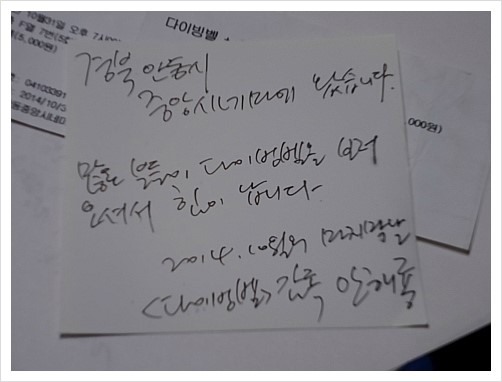 10월31일 오후 7시
F열 7번(5
(5,000원)
04103391
2014/10/3
동중앙시네
다이빙벨
,000원)
경북 안동시
중앙시네마에 왔습니다.
많은 분들이 다이빙벨을 보러
오셔서 힘이 납니다.
2014. 10월의 마지막날
<다이빙벨> 감독 안해룡